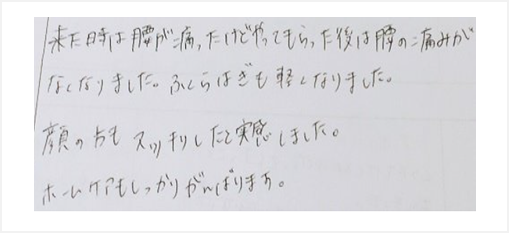 来た時は腰が痛かったけどやってもらった後は腰の痛みが
なくなりました。ふくらはぎも軽くなりました。
顔の方もスッキリしたと実感しました。
ホームケアもしっかりがんばります。